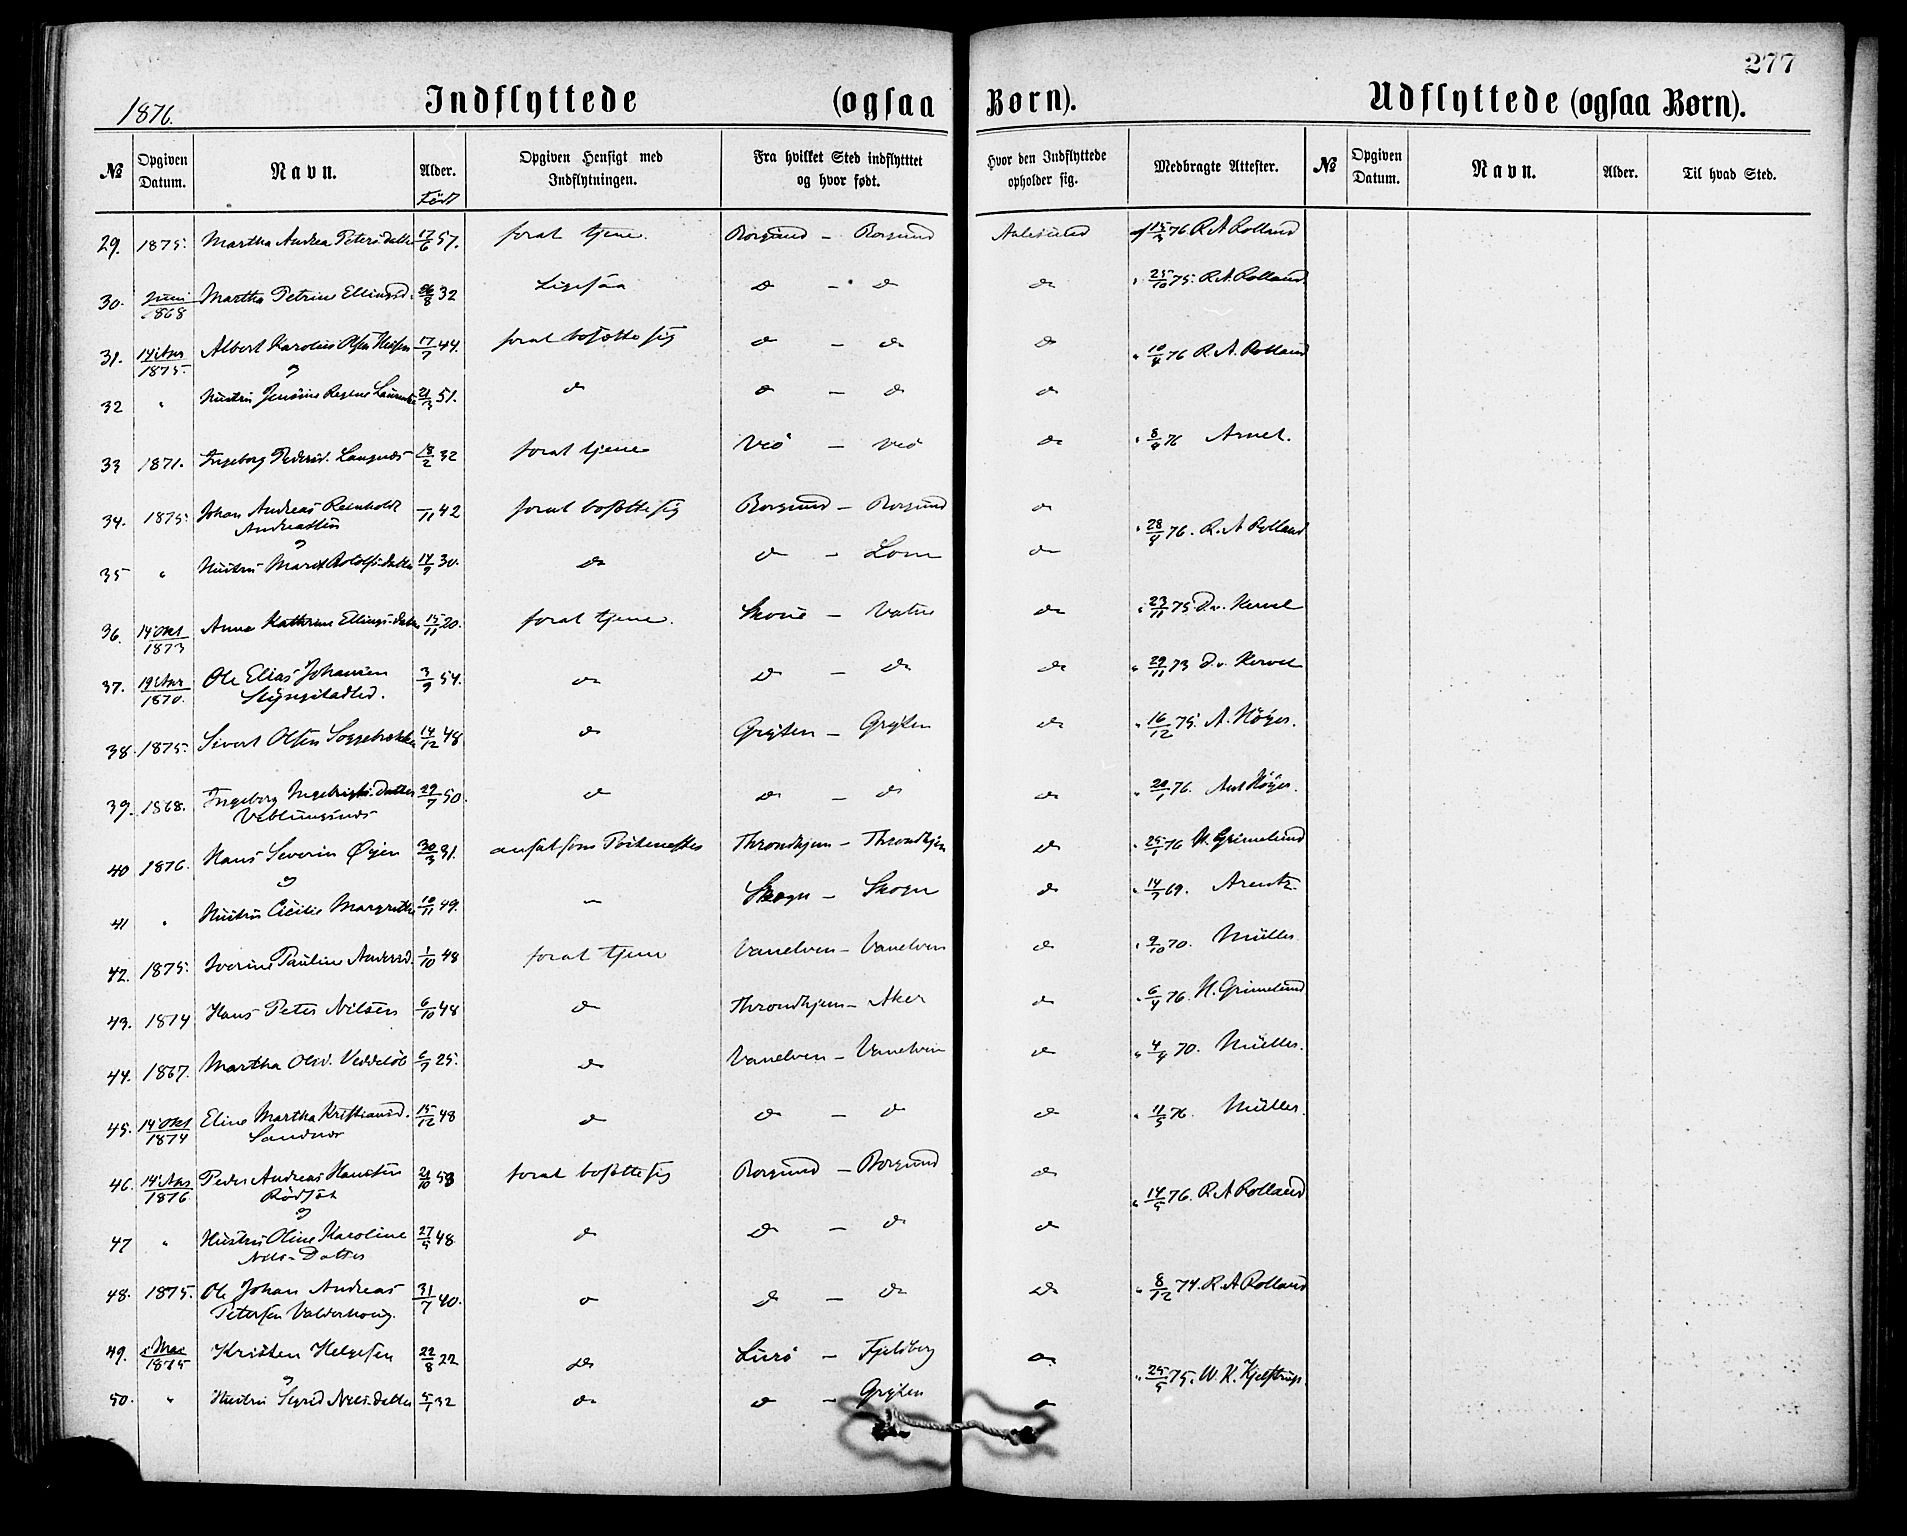 277
1876. Indflyttede (ogsaa Børn). Udflyttede (ogsaa Børn).
№ Opgiven Datum. Navn. Alder. Opgiven Hensigt med Indflytningen. Fra hvilket Sted indflytttet og hvor født. Hvor den Indflyttede opholder sig. Medbragte Attester. № Opgiven Datum. Navn. Alder. Til hvad Sted.
Født
29. 1875. Martha Andrea Petersdatter 17/6 57. forat tjene. Borgund – Borgund Aalesund af 15/3 76 R A Rolland
30. Juni 1868 Martha Petrine Ellingsd. 26/8 32 Ligesaa do – do do " 25/10 75. R. A. Rolland
31. 14 Apr 1875. Albert Karolius Olsen 17/7 44. forat bosætte sig do – do do " 10/4 76 R. A. Rolland
og
32 " Hustru Jensine Regine 51. do do – do do
33 1871. Ingeborg Pedersd. Langnæs 18/2 32 forat tjene Veö – Veö do " 8/4 76
34. 1875. Johan Andreas Reinholdt /11 42 forat bosætte sig Borgund – Borgund do " 28/4 76. R. A Rolland
Andreassen
og
35 " Hustru Marit 14/9 30. do do – Lom do
36. 14 Okt 1873 Anna Kathrine Ellingsdatter 15/11 20. forat tjene. Skoue – Vatne do " 23/11 75 D. v. Kervel
37. 14 Apr 1870. Ole Elias Johansen 3/9 54. do do – do do " 29/11 73 D. v. Kervel
38. 1875. Sivert Olsen 14/12 48 do Gryten – Gryten do " 16/12 75. A. Höyer.
39. 1868. Ingeborg Ingebrigtsdatter 29/7 50. do do – do do " 20/1 76. Höyer.
Veblungsnæs
40 1876. Hans Severin Øyen 30/3 31. ansat som Throndhjem – Throndhjem do " 25/1 76 H. Grimelund
og
41 " Hustru Cicilie Margrethe 10/11 49. – Skogn – Skogn do " 14/7 69. Arentz.
42. 1875. Iverine Pauline Andersd. 1/10 48 forat tjene Vanelven – Vanelven do " 9/10 70. Müller
43. 1874 Hans Peter Nilsen 6/10 48 do Throndhjem – Aker do " 6/4 76. H. Grimelund
44. 1867. Martha Olsd. 25. do Vanelven – Vanelven do " 4/4 70. Müller.
45. 14 Okt 1874 Eline Martha Kristiansd. 15/12 48 do do – do do " 11/5 76. Müller.
Sandnes
46. 14 Apr 1876 Peder Andreas Hansen 53 forat bosætte sig Borgund – Borgund do " 14/5 76. R. A Rolland
Rødsæt
og
47 " Hustru Oline Karoline 27/5 48 do do – do do
Nils-Datter
48. 1875. Ole Johan Andreas 31/7 40. do do – do do " 8/12 74. R. A Rolland
Petersen Valderhoug.
49. Mai 1875 Kristen Helgesen 22/8 22 do Lurö – Fjeldberg do " 25/5 75. W. K. Kjelstrup.
og
50. " Hustru Sigrid Nilsdatter 5/1 32 do do – Gryten do